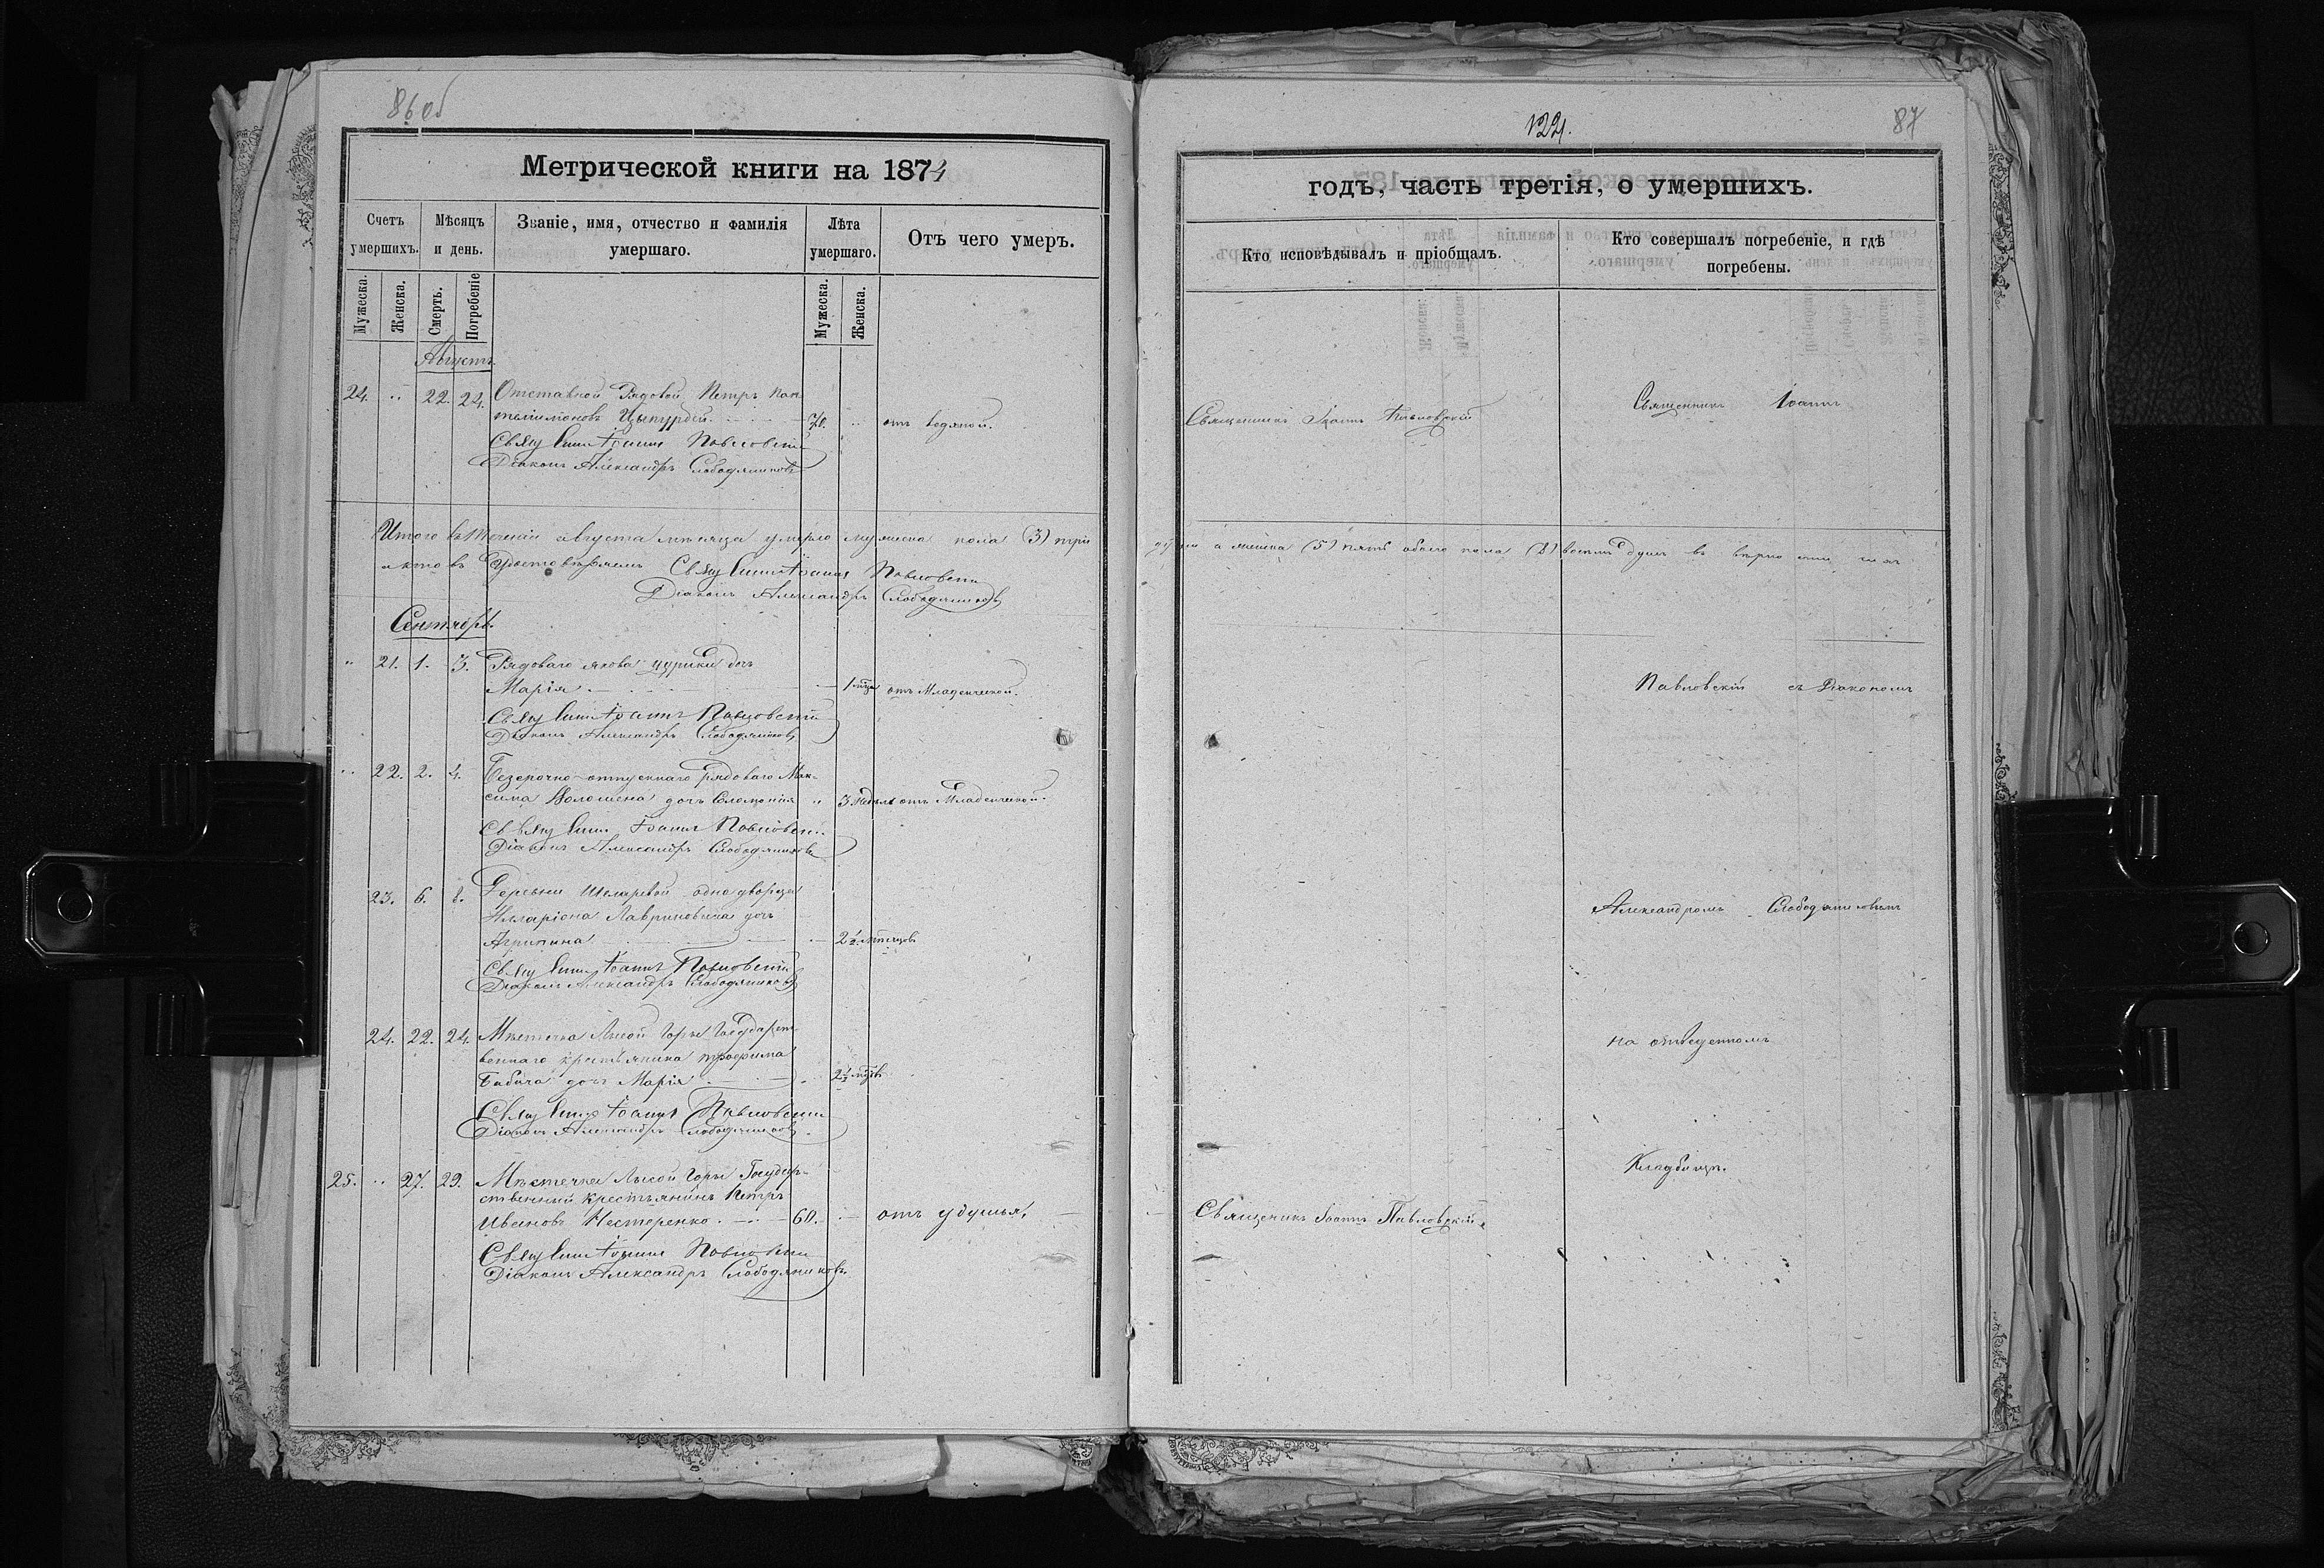 86об
Метрической книги на 1874
Счетъ умершихъ.
Мѣсяцъ и день.
Званіе, имя, отчество и фамилія умершаго.
Лѣта умершаго.
Отъ чего умеръ.
Мужеска.
Женска.
Смерть.
Погребеніе
Мужеска.
Женска.
Августъ.
24. " 22. 24. Отставной Рядовой Петръ Пан
телимоновъ 70. " отъ водяной.
Іоаннъ Павловскій
Діаконъ Александръ Слободяниковъ
Итого въ теченіи августа мѣсяца умерло мужеска пола (3) три
Іоаннъ Павловскій
Діаконъ Александръ Слободяниковъ
Сентябрь.
" 21. 1. 3. Рядоваго Якова Цурики дочь
Марія 1 отъ Младенческой.
Іоаннъ Павловскій
Діаконъ Александръ Слободяниковъ
" 22. 2. 4. Безсрочно-отпускнаго рядоваго Мак-
сима Волошена дочь Соломонія " 3 недѣль отъ Младенческой.
Іоаннъ Павловскій
Діаконъ Александръ Слободяниковъ
23. 6. 8. Деревни однодворца
Илларіона Лавриновича дочь
Агрипина 2½ мѣсяцовъ
Іоаннъ Павловскій
Діаконъ Александръ Слободяниковъ
24. 22. 24. Мѣстечка Лысой Горы Государст-
веннаго крестьянина Трофима
Бабича дочь Марія 2½
Іоаннъ Павловскій
Діаконъ Александръ Слободяниковъ
25. " 27. 29. Мѣстечка Лысой Горы Государ-
ственный крестьянинъ Петръ
Ивановъ Нестеренко. 60. отъ удушья,
Іоаннъ Павловскій
Діаконъ Александръ Слободяниковъ.
122.
87
годъ, часть третія, о умершихъ.
Кто исповѣдывалъ и пріобщалъ.
Кто совершалъ погребеніе, и гдѣ погребены.
Священникъ Іоаннъ Павловскій
Священникъ Іоаннъ
а женска (5) пять обоего пола (8) восемь душъ
Павловскій съ Діакономъ
Александромъ Слободяниковымъ
на отведенномъ
Кладбищѣ.
Священникъ Іоаннъ Павловскій.